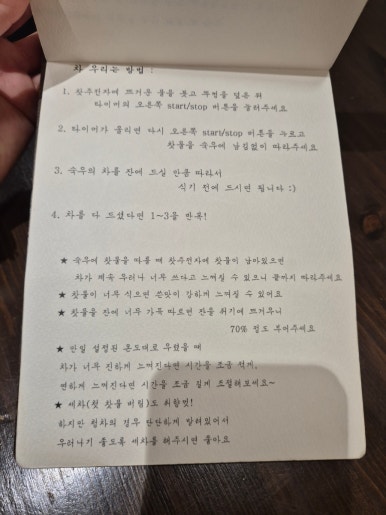 차 우리는 방법 :
1. 찻주전자에 뜨거운 물을 붓고 뚜껑을 덮은 뒤
타이머의 오른쪽 start/stop 버튼을 눌러주세요
2. 타이머가 울리면 다시 오른쪽 start/stop 버튼을 누르고
찻물을 숙우에 남김없이 따라주세요
3. 숙우의 차를 잔에 드실 만큼 따라서
식기 전에 드시면 됩니다 :)
4. 차를 다 드셨다면 1~3을 반복!
★ 숙우에 찻물을 따를 때 찻주전자에 찻물이 남아있으면
차가 계속 우러나 너무 쓰다고 느껴질 수 있으니 끝까지 따라주세요
★ 찻물이 너무 식으면 쓴맛이 강하게 느껴질 수 있어요
★ 찻물을 잔에 너무 가득 따르면 잔을 쥐기에 뜨거우니
70% 정도 부어주세요
★ 만일 설정된 온도대로 우렸을 때
차가 너무 진하게 느껴진다면 시간을 조금 적게,
연하게 느껴진다면 시간을 조금 길게 조절해보세요~
★ 세차(첫 찻물 버림)도 취향껏!
하지만 청차의 경우 단단하게 말려있어서
우러나기 좋도록 세차를 해주시면 좋아요